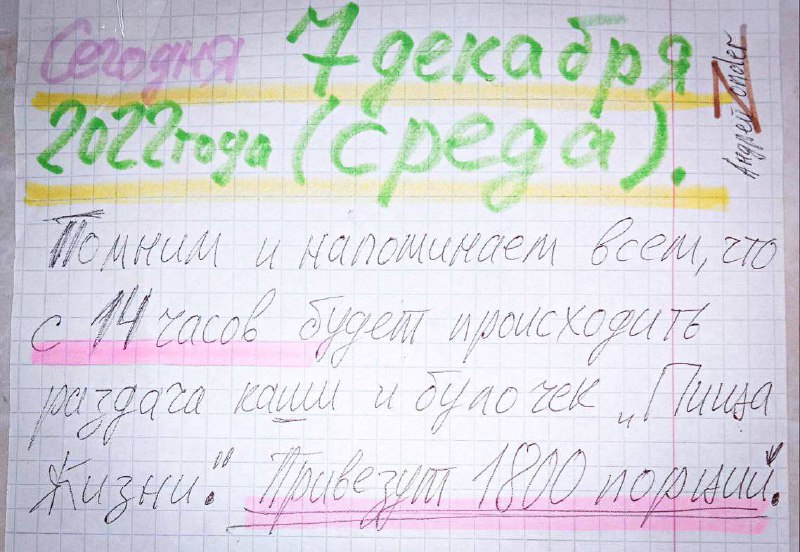 Сегодня 7 декабря
2022 года (среда).
Андрей Zonder
Помним и напоминаем всем, что
с 14 часов будет происходить
раздача каши и булочек „Пища
Жизни." Привезут 1800 порций.